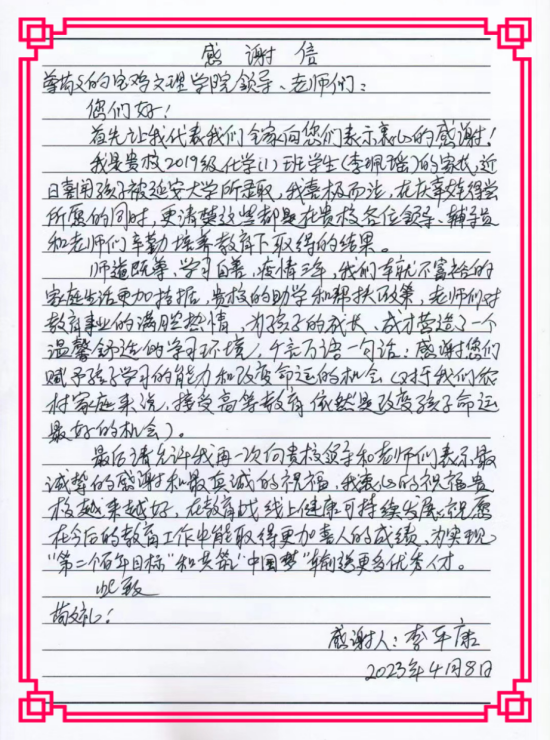 感谢信
尊敬的宝鸡文理学院领导、老师们：
您们好！
首先让我代表我们全家向您们表示衷心的感谢！
我是贵校2019级化学(1)班学生(李珮瑶)的家长,近
日喜闻孩子被延安大学所录取,我喜极而泣,在庆幸女儿得尝
所愿的同时,更清楚这些都是在贵校各位领导、辅导员
和老师们辛勤培养教育下取得的结果。
师道既尊,学习自善,疫情三年,我们本就不富裕的
家庭生活更加拮据,贵校的助学和帮扶政策,老师们对
教育事业的满腔热情,为孩子的成长、成才营造了一个
温馨舒适的学习环境,千言万语一句话：感谢您们
赋予孩子学习的能力和改变命运的机会(对于我们农
村家庭来说,接受高等教育依然是改变孩子命运
最好的机会)。
最后请允许我再一次向贵校领导和老师们表示最
诚挚的感谢和最真诚的祝福,我衷心的祝福贵
校越来越好,在教育战线上健康可持续发展;祝愿
在今后的教育工作中能取得更加喜人的成绩,为实现
“第二个百年目标”和共筑“中国梦”输送更多优秀人才。
此致
敬礼！
感谢人：李平康
2023年4月8日